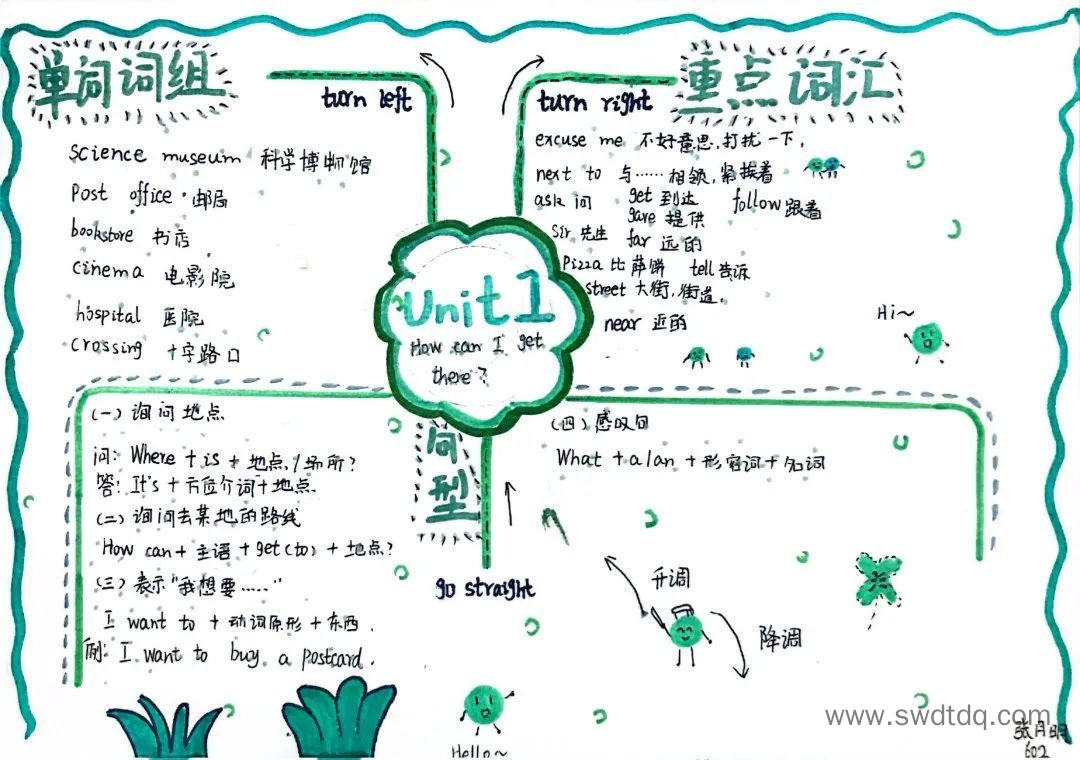 单词词组
turn left
science museum 科学博物馆
post office 邮局
bookstore 书店
cinema 电影院
hospital 医院
crossing 十字路口
turn right
重点词汇
excuse me 不好意思,打扰一下,
next to 与……相领,紧挨着
ask 问 get 到达 follow 跟着
gave 提供
Sir 先生 far 远的
Pizza 比萨饼 tell 告诉
street 大街,街道,
near 近的
Hi~
Unit 1
How can I get
there?
句型
(一) 询问地点
问: Where + is + 地点/场所?
答: It's + 方位介词 + 地点
(二) 询问去某地的路线
How can + 主语 + get (to) + 地点?
(三) 表示"我想要……"
I want to + 动词原形 + 东西.
例: I want to buy a postcard.
go straight
(四) 感叹句
What + a/an + 形容词 + 名词
升调
降调
Hello~
www.swdtdq.com
张月明
602